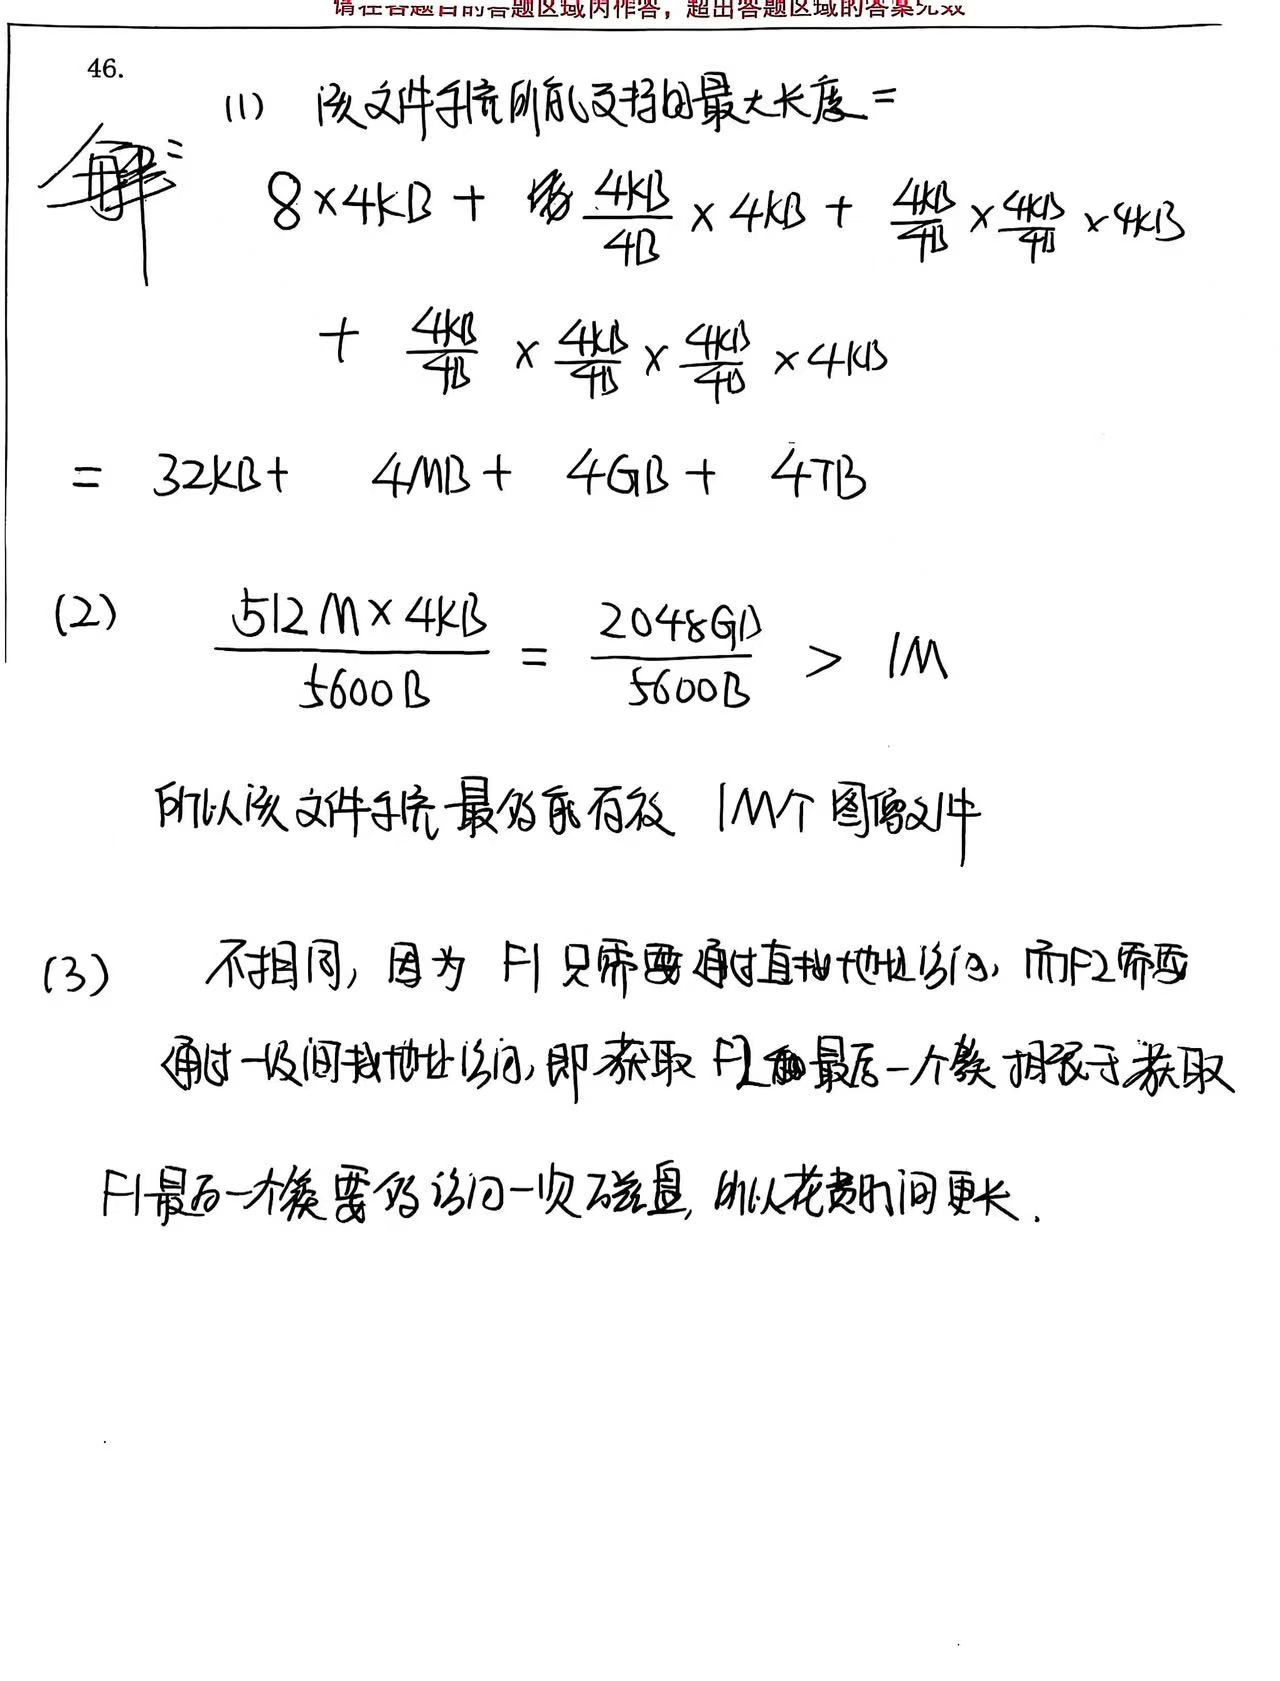 请在各题目的答题区域内作答，超出答题区域的答案无效
46.
解：
(1) 该文件系统所能支持的最大长度 =
8×4KB + 4KB/4B × 4KB + 4KB/4B × 4KB/4B × 4KB
+ 4KB/4B × 4KB/4B × 4KB/4B × 4KB
= 32KB + 4MB + 4GB + 4TB
(2) 512M×4KB/5600B = 2048GB/5600B > 1M
所以该文件系统最多能存放 1M个图像文件
(3) 不相同, 因为 F1只需要通过直接地址访问, 而F2需要
通过一级间接地址访问, 即获取 F2的最后一个簇相较于获取
F1最后一个簇要多访问一次磁盘, 所以花费时间更长.